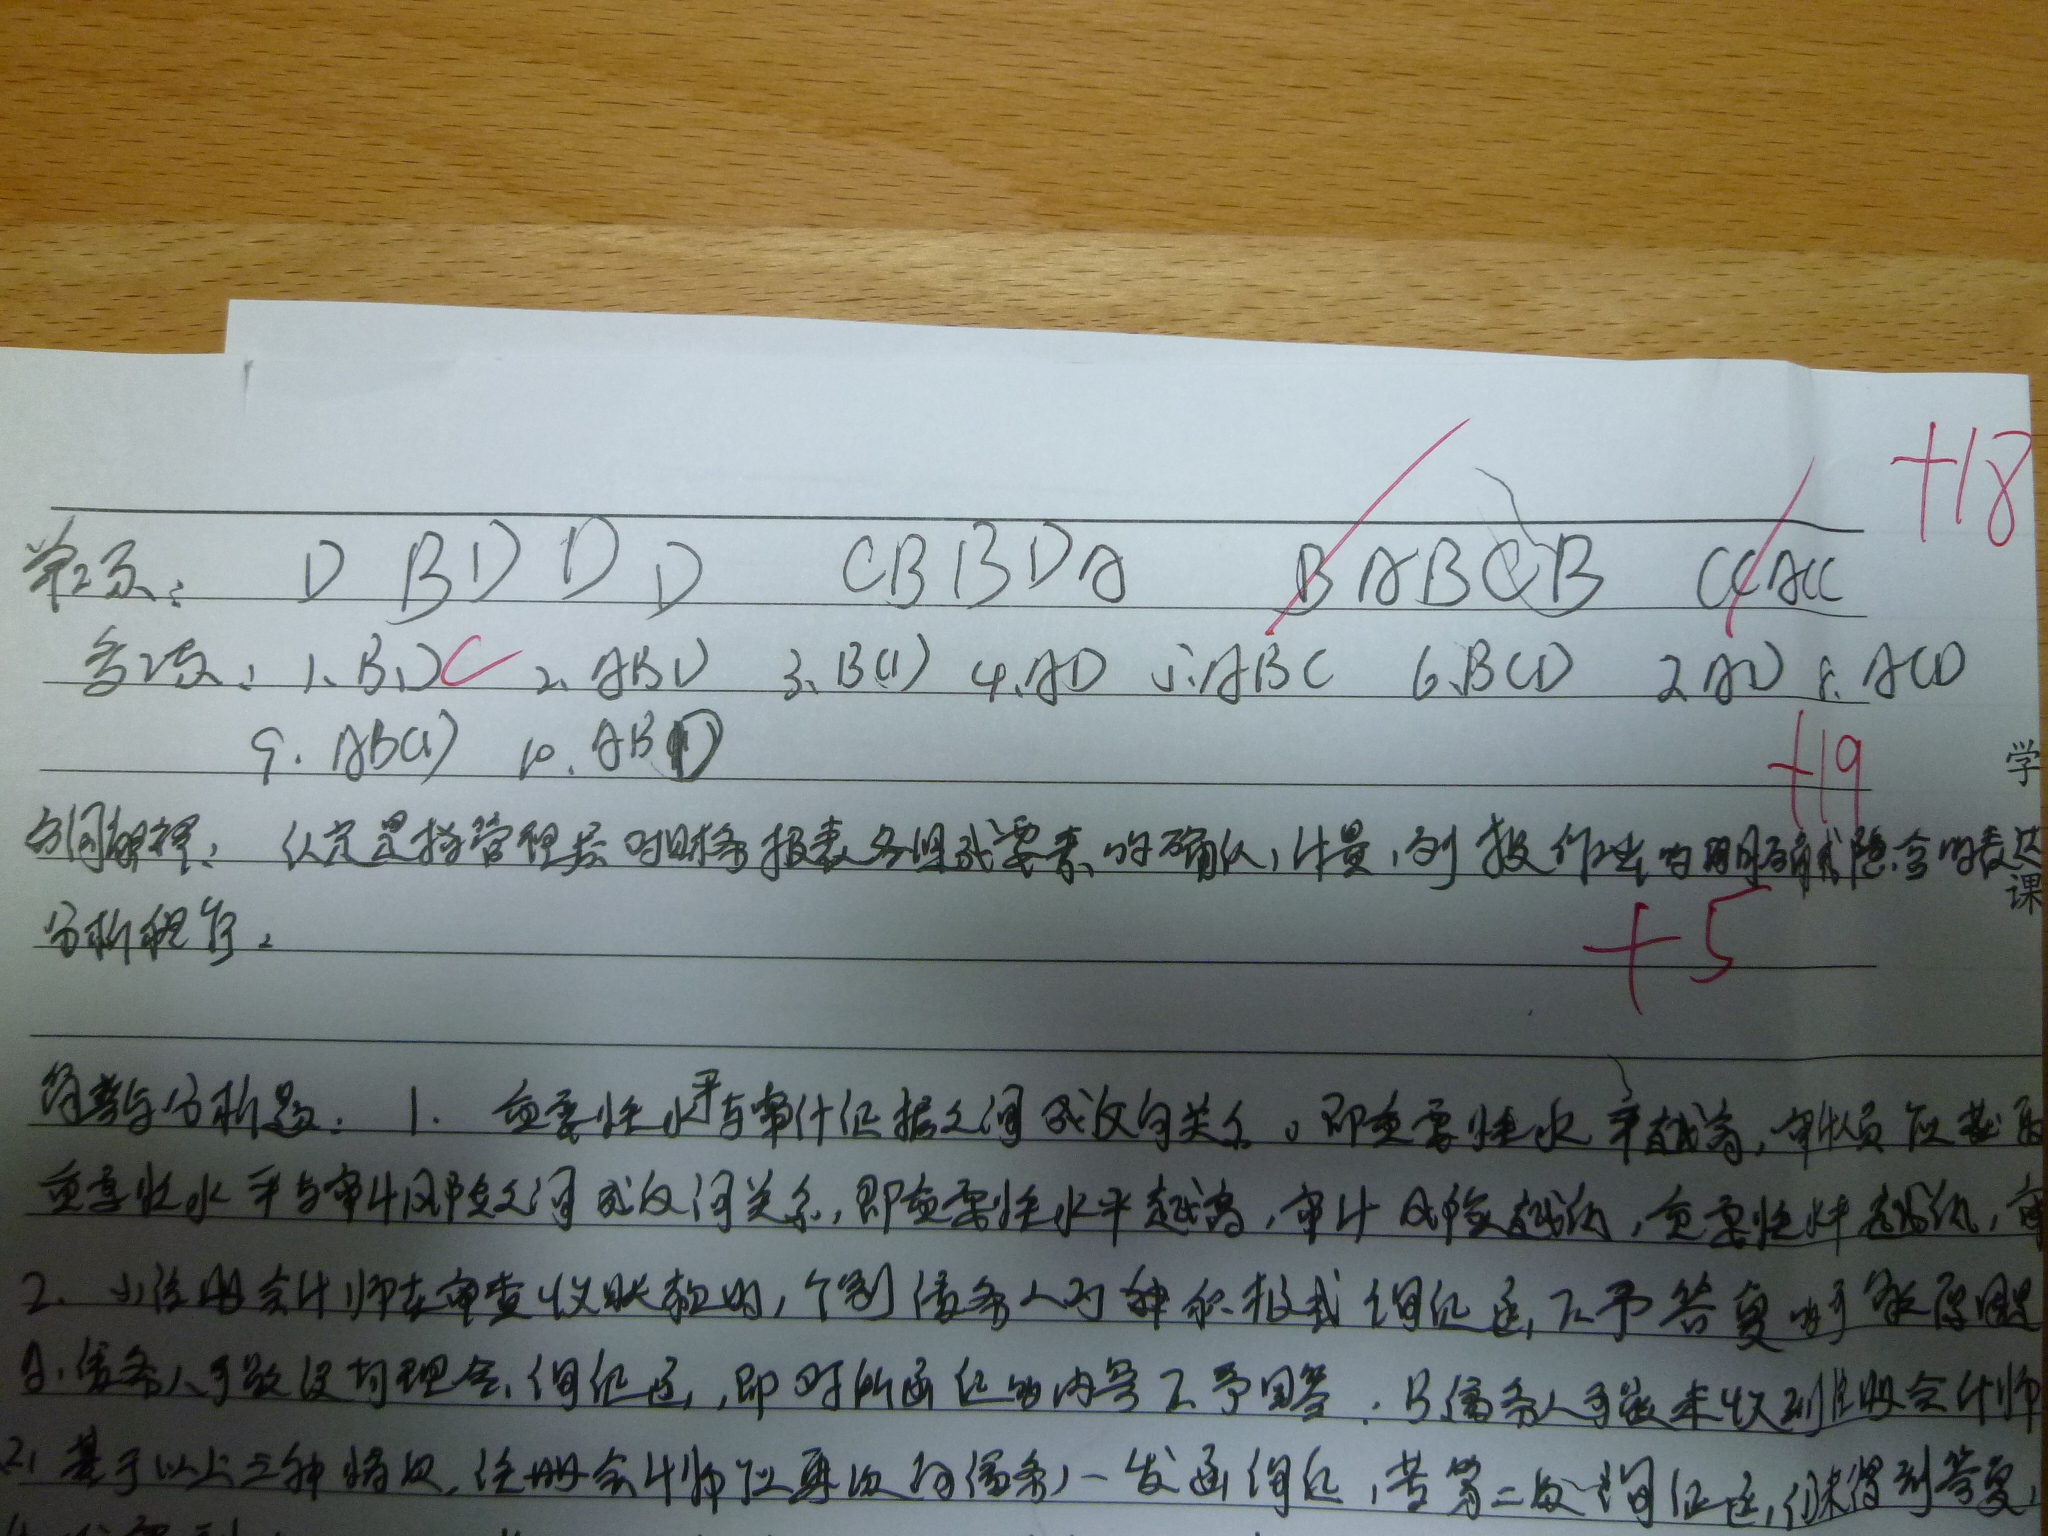 +18
单选: D B D D D C B B D A B A B C B C C A C C
多选: 1. B D C 2. ABD 3. BCD 4. AD 5. ABC 6. BCD 7. AD 8. ACD
9. ABCD 10. ABD
+19
学
名词解释: 认定是指管理层对财务报表各组成要素的确认,计量,列报作出的明确或隐含的表达
课
分析程序:
+5
简答与分析题: 1. 重要性水平与审计证据之间成反向关系。即重要性水平越高,审计人员应
重要性水平与审计风险之间成反向关系,即重要性水平越高,审计风险越低,重要性水平越低,审
2. 1)注册会计师在审查收账款时,个别债务人对积极式询证函,不予答复
债务人可能没有理会询证函,即对所函证的内容不予回答; B债务人可能未收到注册会计师
2) 基于以上三种情况,注册会计师应再次向债务人发函询证,若第二次询证函仍未得到答复,